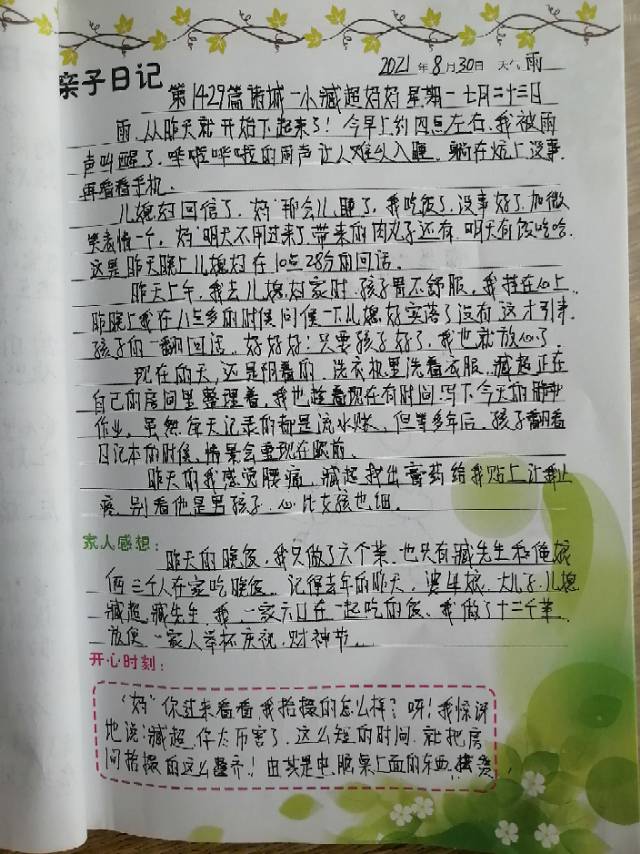 亲子日记
2021年8月30日 天气 雨
第1429篇诸城一小臧超妈妈星期一七月二十三日
雨,从昨天就开始下起来了!今早上约四点左右,我被雨
声叫醒了,哗啦哗啦的雨声让人难以入睡,躺在炕上没事,
再看看手机。
儿媳妇回信了,妈那会儿睡了,我吃饭了,没事好了,加微
笑表情一个,妈明天不用过来了,带来的肉丸子还有,明天有饭吃哈,
这是昨天晚上儿媳妇在10点28分的回话。
昨天上午,我去儿媳妇家时,孩子胃不舒服,我挂在心上,
昨晚上我在八点多的时候问候一下儿媳妇实落了没有,这才引来
孩子的一翻回话,好好好!只要孩子好了,我也就放心了。
现在的天,还是阴着的,洗衣机里洗着衣服,臧超正在
自己的房间里整理着,我也趁着现在有时间,写下今天的
作业,虽然每天记录的都是流水账,但等多年后,孩子翻看
日记本的时候,情景会重现在眼前。
昨天的我感觉腰痛,臧超找出膏药给我贴上让我止
疼,别看他是男孩子,心比女孩也细。
家人感想:
昨天的晚饭,我只做了六个菜,也只有臧先生和俺娘
俩三个人在家吃晚饭。记得去年的昨天,婆母娘,大儿子,儿媳
臧超,臧先生,我一家六口在一起吃的饭,我做了十二个菜,
一家人举杯庆祝,财神节。
开心时刻:
“妈”你过来看看,我拾掇的怎么样?呀!我惊讶
地说:臧超,你太厉害了,这么短的时间,就把房
间拾掇的这么整齐!由其是电脑桌上面的东西,